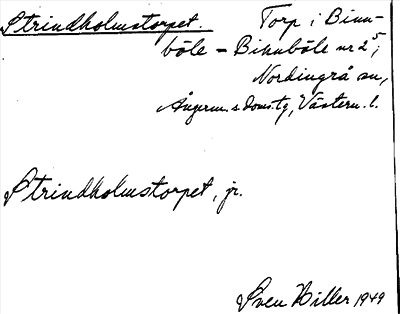 Strindholmstorpet. Torp i Binn-
böle - Binnböle nr 2⁵,
Nordingrå sn,
Ångerm. s. Doms.tg, Västern. l.
Strindholmstorpet, jr.
Sven Hiller 1949